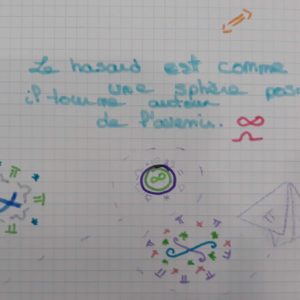 Le hasard est comme
une sphère pas
il tourne autour
de l'avenir.